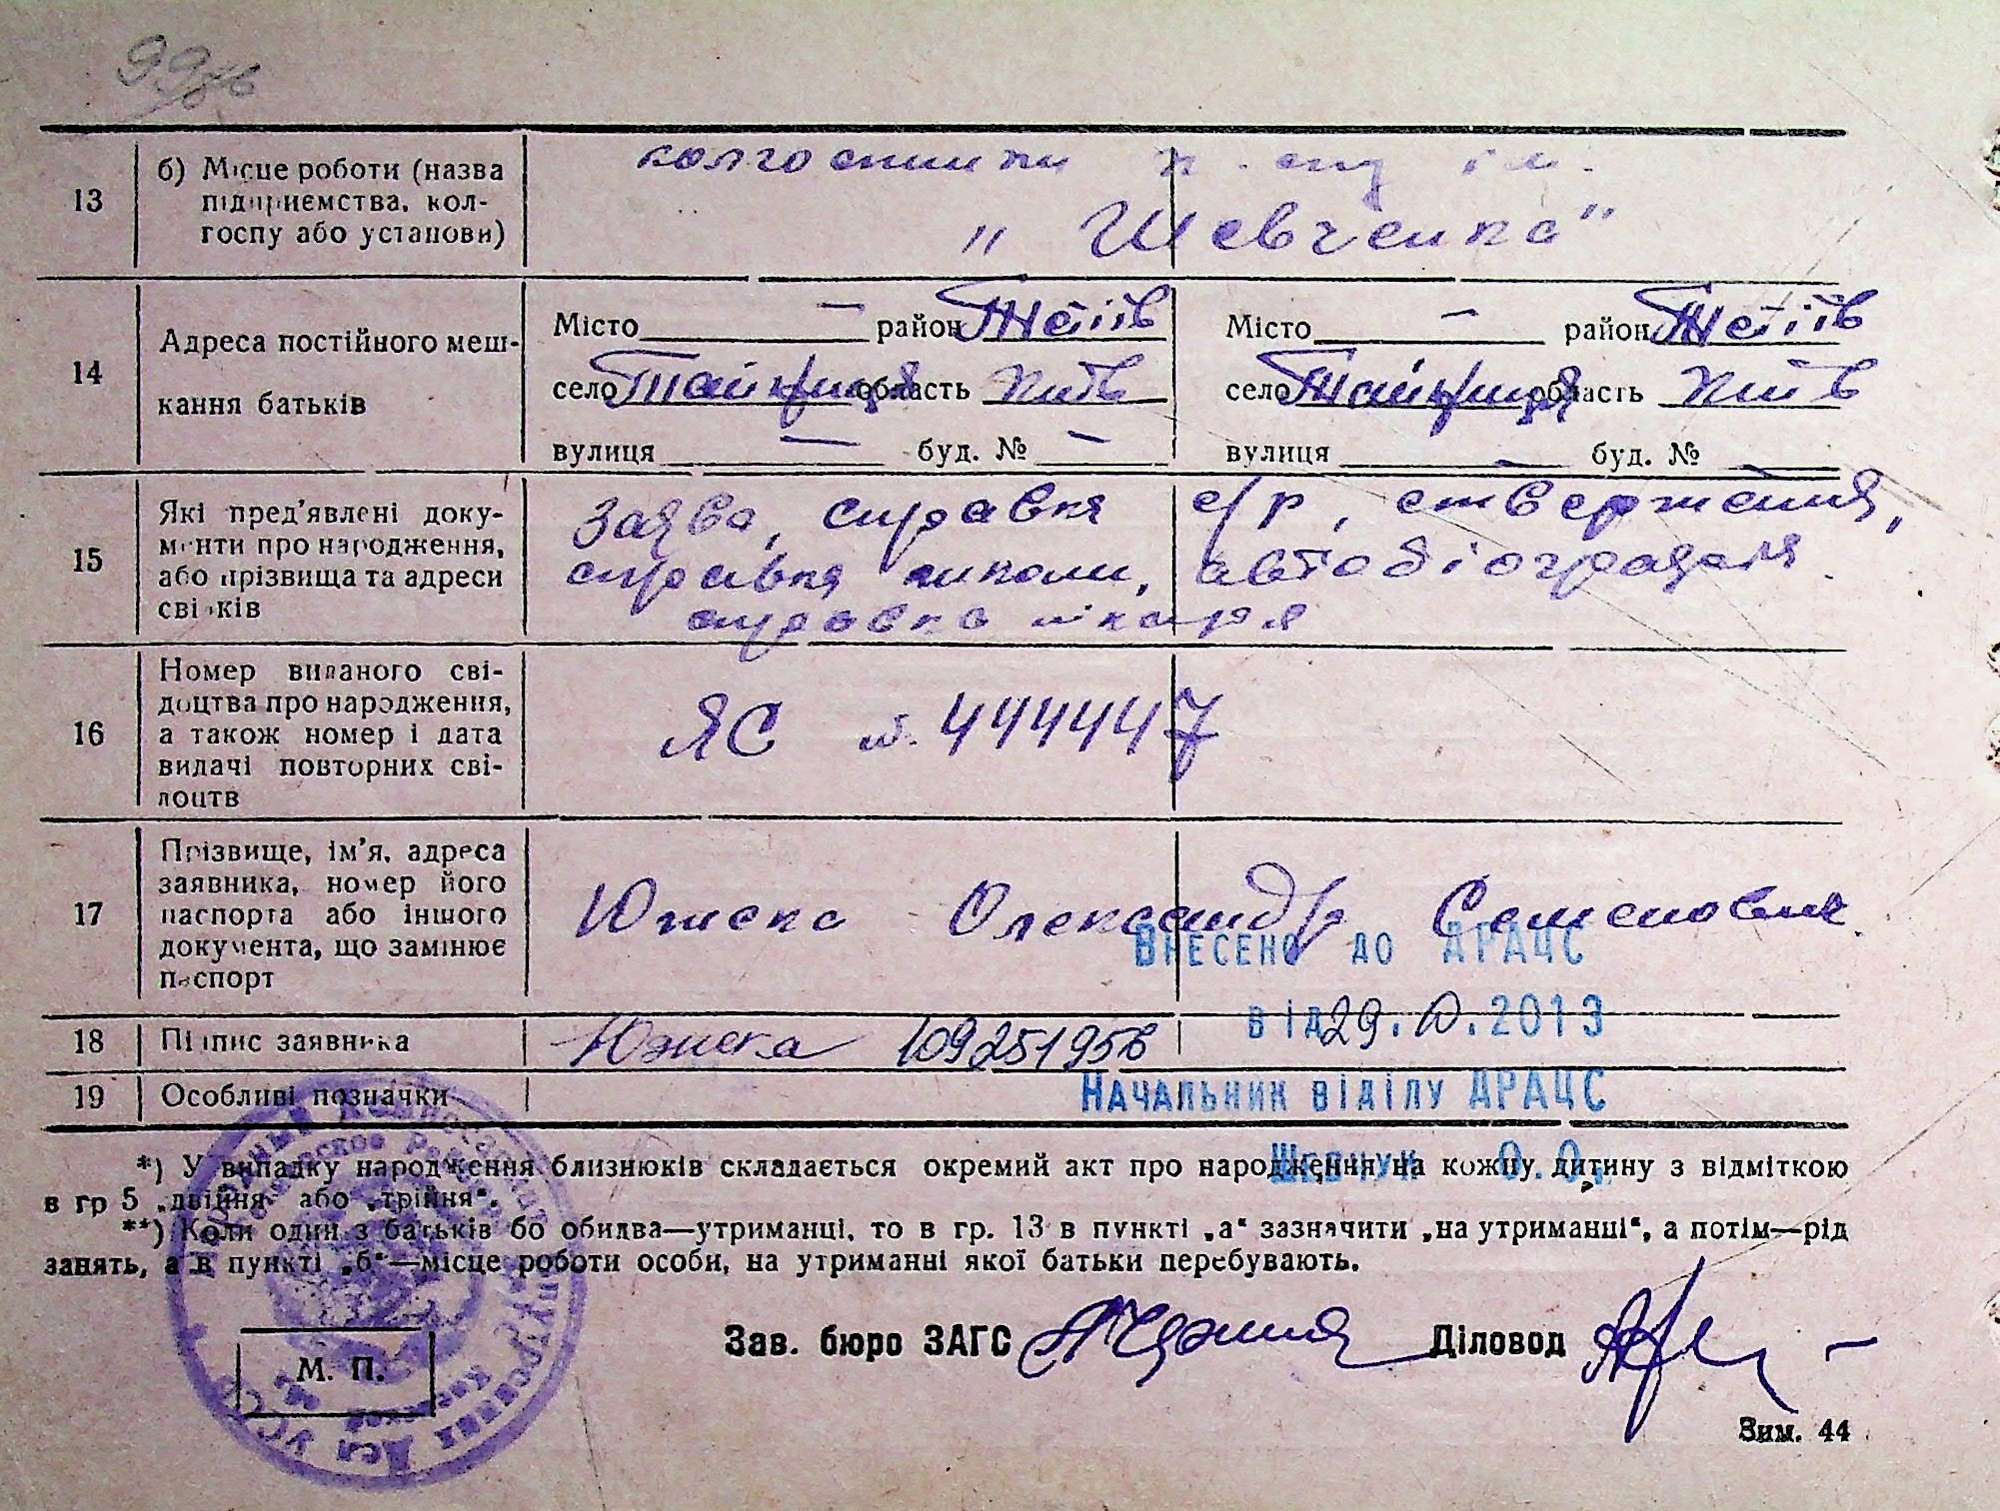 13 б) Місце роботи (назва підприємства, колгоспу або установи) колгоспники к. спу ім. „Шевченка"
14 Адреса постійного мешкання батьків
Місто — район Тетіїв Місто — район Тетіїв
село Тайниця область Київ село Тайниця область Київ
вулиця — буд. № — вулиця — буд. № —
15 Які пред'явлені документи про народження, або прізвища та адреси свідків
Заява, справка с/р, ствердження,
справка школи, автобіографія.
справка лікаря
16 Номер виданого свідоцтва про народження, а також номер і дата видачі повторних свідоцтв
ЯС № 444447
17 Прізвище, ім'я, адреса заявника, номер його паспорта або іншого документа, що замінює паспорт
Олександр Семенович.
Внесено до ДРАЦС
від 29.10.2013
18 Підпис заявника
19 Особливі позначки
Начальник відділу ДРАЦС
Шевчук О.О.
*) У випадку народження близнюків складається окремий акт про народження на кожну дитину з відміткою
в гр 5 „двійня" або „трійня".
**) Коли один з батьків бо обидва—утриманці, то в гр. 13 в пункті „а" зазначити „на утриманні", а потім—рід
занять, а в пункті „б"—місце роботи особи, на утриманні якої батьки перебувають.
Зав. бюро ЗАГС Діловод
М. П.
Зим. 44